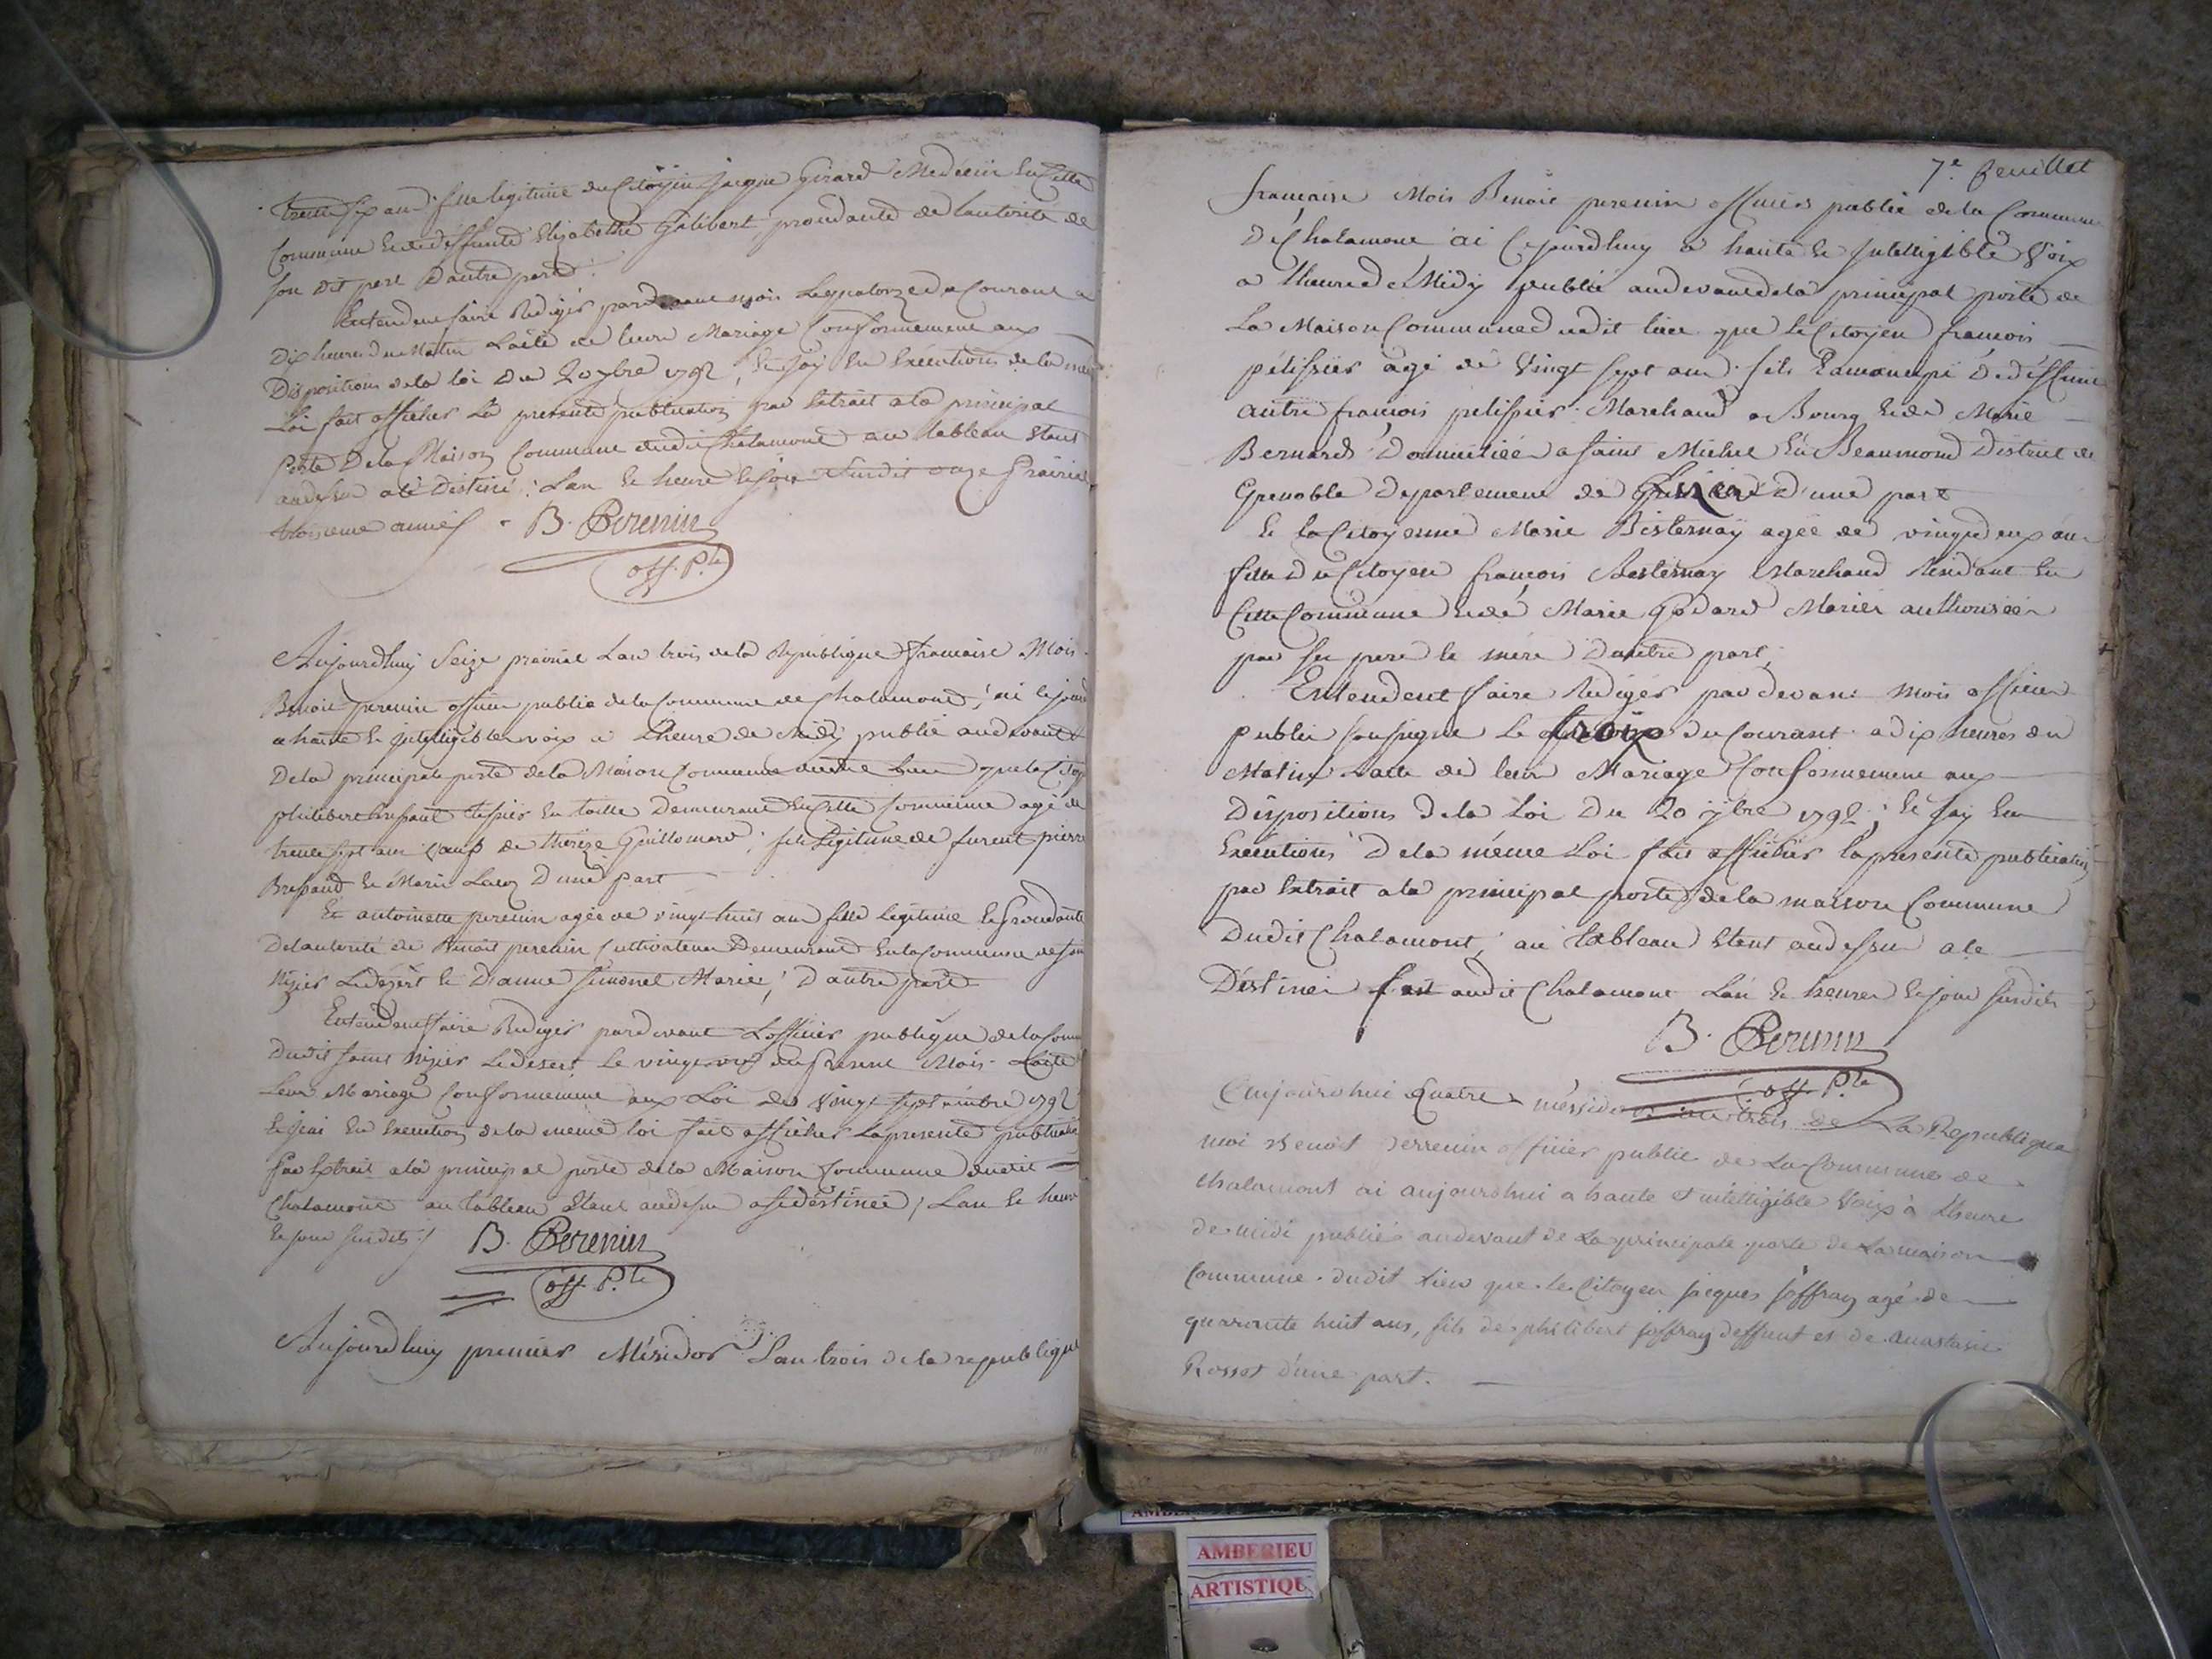 trente six ans fille legitime du Citoyen Jacque Girard Medecin En Cette
Commune et de deffunte Elizabethe Galibert, procedante de lautorité de
son dit pere D'autre part.
Entendent faire Rediger pardevant moi Le quatorze du Courant a
Dix heures du Matin Lacte de leur Mariage Conformement aux
Dispositions de la loi Du 20 7bre 1792, et jay En Exécutions de la même
Loi fait afficher La presente publication par Extrait a la principal
Porte De la Maison Commune dudit Chalamont au tableau Etant
audessu a lé Destiné. Lan le heure le jour Susdit onze Prairial
troisieme année - B. Perenin
off. P.le
Aujourdhuy Seize prairial Lan trois de la République francaise Moi
Benoit perenin officier public de la Commune de Chalamont, ai le jourd
a haute et inteligible voix a Lheure de Midy publié audevant
De la principale porte de la Maison Commune dudit lieu que le Citoy
philibert Brepaud tessier En toille Demeurant En Cette Commune agé de
trente sept ans veuf de Thereze Guillomard; fils Legitime de furent pierre
Brepaud et Marie Lacoz D'une part
Et antoinette perenin agée de vingt huit ans fille legitime et Procedante
De lautorité de Benoit perenin Cultivateur Demeurant En la Commune de Sain
Nizier Ledezert et D'anne Simonet Marié, D'autre part
Entendent faire Rediger pardevant Lofficier publique de la Comm
Dudit Saint Nizier Ledesert Le vingt du present Mois Lacte
Leur Mariage Conformément aux Loi du Vingt Septembre 1792
Et jai En Execution de la meme loi fait afficher La presente publication
Par Extrait a la principal porte de la Maison Commune dudit
Chalamont au tableau Etant audessu a le destinée, Lan le heure
le jour Susdits B. Perenin
off. P.le
Aujourdhuy premier Mésidor Lan trois de la republique
7e feuillet
francaise Moi Benoit perenin officier public de la Commune
De Chalamont ai Cejourdhuy a haute et Intelligible Voix
a lheure de Midy publié audevant de la principal porte de
La Maison Commune dudit lieu que le Citoyen francois
pélissier agé de Vingt sept ans fils Emancipé De deffunt
autre francois pelissier Marchand a Bourg et de Marie
Bernard Domiciliée a Saint Michel En Beaumond District de
Grenoble Departement de Lizere D'une part
Et la Citoyenne Marie Besternay agée de vingt deux ans
fille du Citoyen francois Besternay Marchand Residant En
Cette Commune et de Marie Godard Mariés authorisée
par ses pere et mere D'autre part;
Entendent faire Rédiger par devant Moi officier
public soussigné Le troix du Courant a dix heures du
Matin Lacte de leur Mariage Conformement aux
Dispositions De la Loi Du 20 7bre 1792; et jay En
Exécutions De la même Loi fait afficher la presente publication
par Extrait a la principal porte de la maison Commune
Dudit Chalamont, au tableau Etant audessu a le
Destiner fait audit Chalamont Lan le heures le jour susdits
B. Perenin
off. P.le
Aujourdhui Quatre messidor an trois de La Republique
moi Benoit Perrenin officier public de La Commune de
Chalamont ai aujourdhui a haute et intelligible Voix à Lheure
de midi publiés audevant de La principale porte de La maison
Commune dudit lieu que le Citoyen jacques joffray agé de
quarante huit ans, fils de philibert joffray deffunt et de anastasie
Rosset d'une part.
AMBERIEU
ARTISTIQU